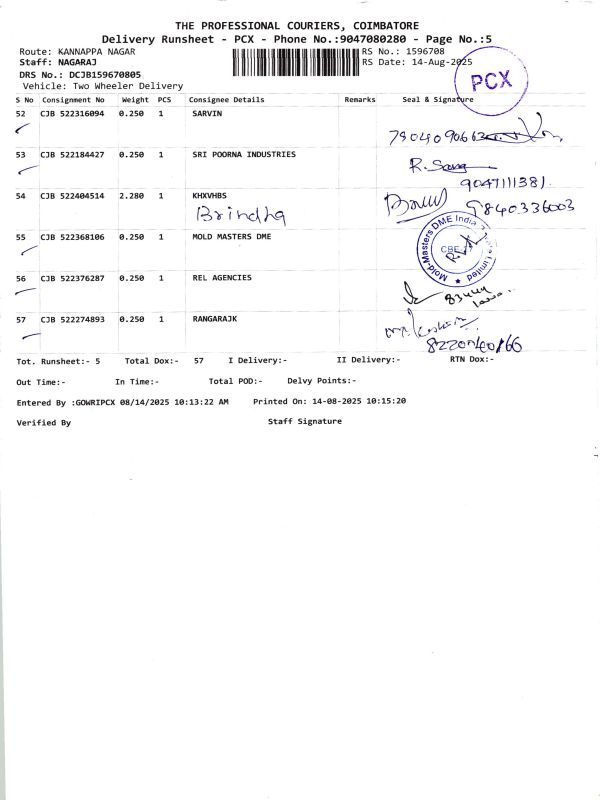 THE PROFESSIONAL COURIERS, COIMBATORE
Delivery Runsheet - PCX - Phone No.:9047080280 - Page No.:5
Route: KANNAPPA NAGAR RS No.: 1596708
Staff: NAGARAJ RS Date: 14-Aug-2025
DRS No.: DCJB159670805
Vehicle: Two Wheeler Delivery
PCX
S No Consignment No Weight PCS Consignee Details Remarks Seal & Signature
52 CJB 522316094 0.250 1 SARVIN
53 CJB 522184427 0.250 1 SRI POORNA INDUSTRIES
R. Sang
9047111381.
54 CJB 522404514 2.280 1 KHXVHBS
Brindha 9840336003
55 CJB 522368106 0.250 1 MOLD MASTERS DME
Mold-Masters DME India Limited
CBE
56 CJB 522376287 0.250 1 REL AGENCIES
57 CJB 522274893 0.250 1 RANGARAJK
Tot. Runsheet:- 5 Total Dox:- 57 I Delivery:- II Delivery:- RTN Dox:-
Out Time:- In Time:- Total POD:- Delvy Points:-
Entered By :GOWRIPCX 08/14/2025 10:13:22 AM Printed On: 14-08-2025 10:15:20
Verified By Staff Signature